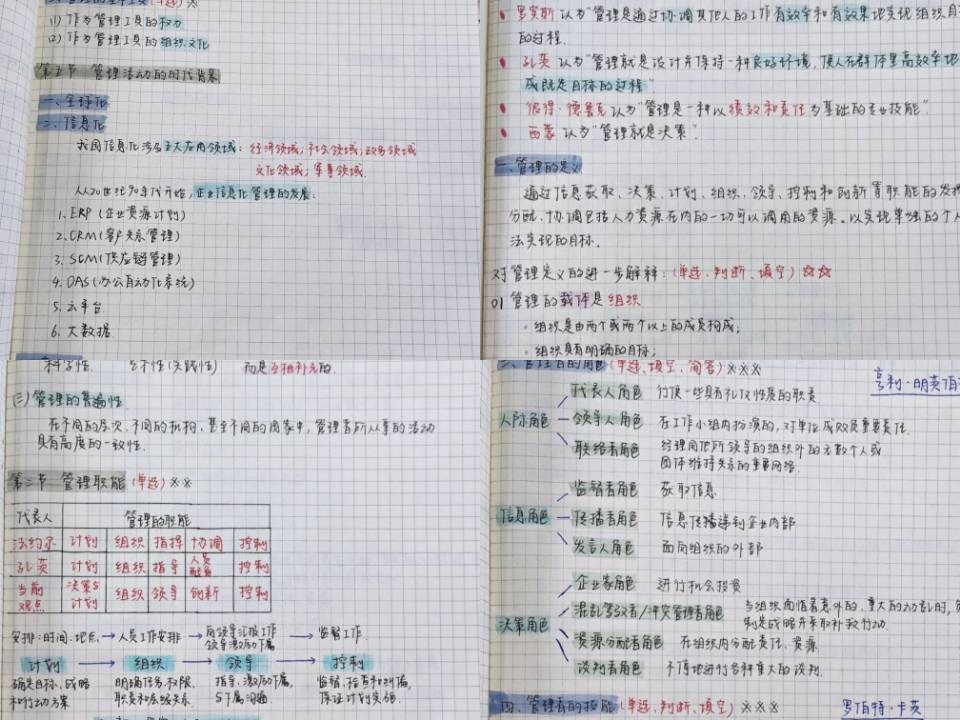 (1) 作为管理工具的权力
(2) 作为管理工具的组织文化
第五节 管理活动的时代背景
一、全球化
二、信息化
我国信息化涉及五大应用领域：经济领域；社会领域；政务领域
文化领域；军事领域.
从20世纪70年代开始，企业信息化管理的发展：
1. ERP (企业资源计划)
2. CRM (客户关系管理)
3. SCM (供应链管理)
4. OAS (办公自动化系统)
5. 云平台
6. 大数据
罗宾斯 认为“管理是通过协调其他人的工作有效率和有效果地实现组织目
的过程.
孔茨 认为“管理就是设计并保持一种良好环境，使人在群体里高效率地
成既定目标的过程”
彼得·德鲁克 认为“管理是一种以绩效和责任为基础的专业技能”
西蒙 认为“管理就是决策”.
一、管理的定义
通过信息获取、决策、计划、组织、领导、控制和创新等职能的发挥
分配、协调包括人力资源在内的一切可以调用的资源。以实现单独的个人
法实现的目标.
对管理定义的进一步解释：(单选、判断、填空) ☆☆
01 管理的载体是组织
·组织是由两个或两个以上的成员构成；
·组织具有明确的目标；
科学性 艺术性(实践性) 而是互相补充的.
(三) 管理的普遍性
在不同的层次，不同的机构，甚至不同的国家中，管理者所从事的活动
具有高度的一致性.
第二节 管理职能 (单选) ※※
代表人 管理的职能
法约尔 计划 组织 指挥 协调 控制
孔茨 计划 组织 指导 人员配备 控制
当前观点 决策与计划 组织 领导 创新 控制
安排：时间、地点 → 人员工作安排 → 向领导汇报工作 领导激励下属 → 监督工作.
计划 → 组织 → 领导 → 控制
确定目标、战略 明确任务、权限、 指导、激励下属， 监督、检查和纠偏，
和行动方案 职责和系统关系. 与下属沟通 保证计划实施
三、管理者的角色 (单选、填空、简答) ※※※
亨利·明茨伯
人际角色
代表人角色 行使一些具有礼仪性质的职责
领导人角色 在工作小组内扮演的，对单位成败负重要责任.
联络者角色 经理同他所领导的组织外的无数个人或
团体维持关系的重要网络.
信息角色
监督者角色 获取信息
传播者角色 信息传播递到企业内部
发言人角色 面向组织的外部
决策角色
企业家角色 进行机会投资
混乱驾驭者/冲突管理者角色 当组织面临着意外的、重大的动乱时，负
制定战略并采取补救行动.
资源分配者角色 在组织内分配责任、资源
谈判者角色 不停地进行各种重大的谈判.
四、管理者的技能 (单选、判断、填空) ※※※
罗伯特·卡茨